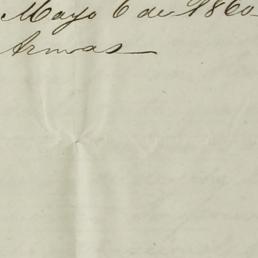 Mayo 6 de 1860
Armas